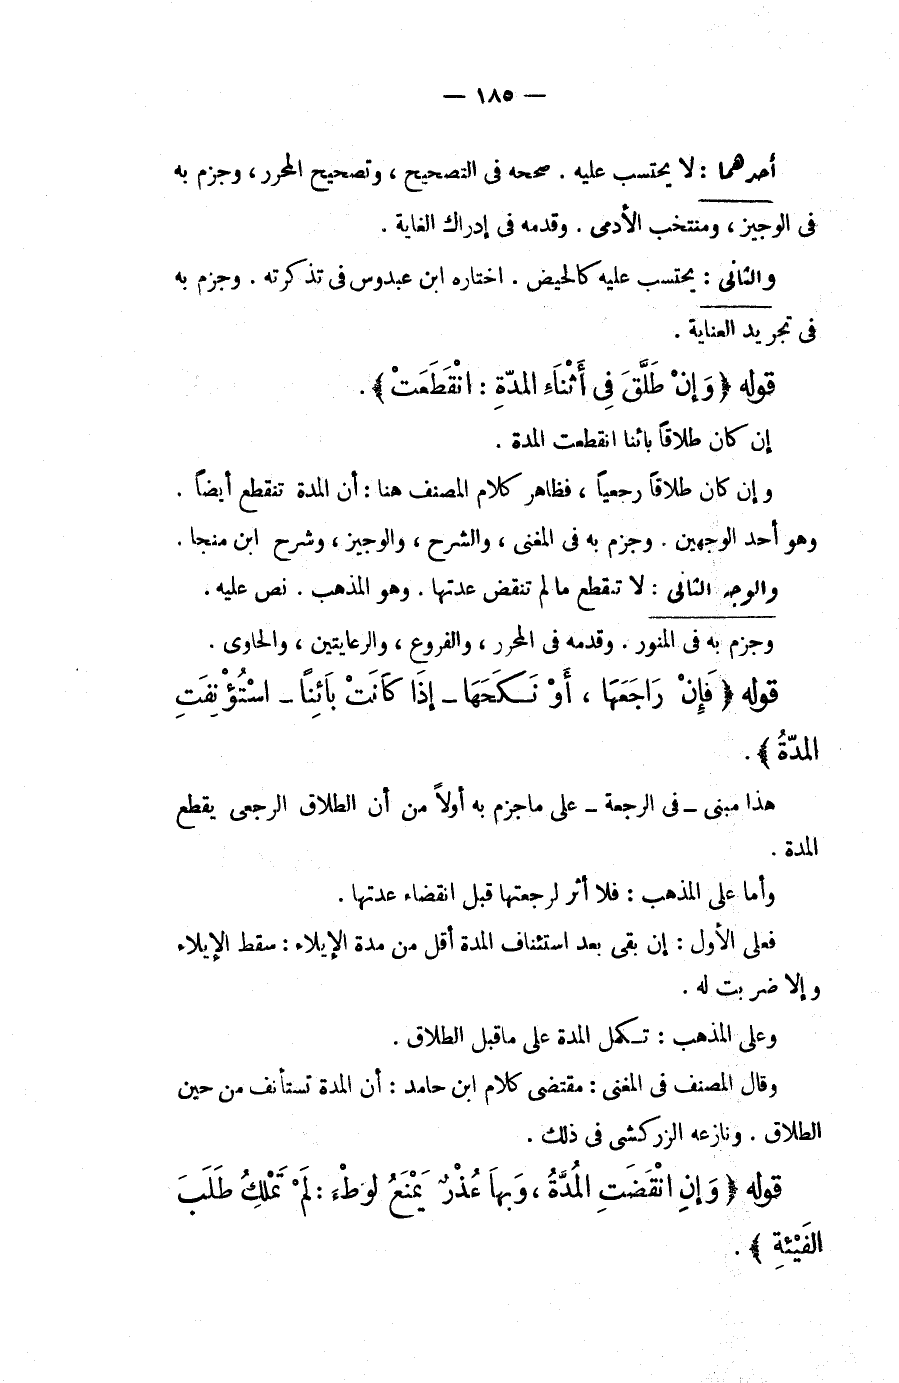 — ١٨٥ —
أحدهما : لا يحتسب عليه . صححه فى التصحيح ، وتصحيح المحرر ، وجزم به
فى الوجيز ، ومنتخب الأدمى . وقدمه فى إدراك الغاية .
والثانى : يحتسب عليه كالحيض . اختاره ابن عبدوس فى تذكرته . وجزم به
فى تجريد العناية .
قوله ﴿ وَإِنْ طَلَّقَ فِى أَثْنَاءِ المدّةِ : انْقَطَعَتْ ﴾ .
إن كان طلاقاً بائنا انقطعت المدة .
وإن كان طلاقاً رجعياً ، فظاهر كلام المصنف هنا : أن المدة تنقطع أيضاً .
وهو أحد الوجهين . وجزم به فى المغنى ، والشرح ، والوجيز ، وشرح ابن منجا .
والوجه الثانى : لا تنقطع مالم تنقض عدتها . وهو المذهب . نص عليه .
وجزم به فى المنور . وقدمه فى المحرر ، والفروع ، والرعايتين ، والحاوى .
قوله ﴿ فَإِنْ رَاجَعَهَا ، أَوْ نَكَحَهَا ـ إِذَا كَانَتْ بَائِنًا ـ اسْتُؤْنِفَتِ
المدّةُ ﴾ .
هذا مبنى ـ فى الرجعة ـ على ماجزم به أولاً من أن الطلاق الرجعى يقطع
المدة .
وأما على المذهب : فلا أثر لرجعتها قبل انقضاء عدتها .
فعلى الأول : إن بقى بعد استئناف المدة أقل من مدة الإيلاء : سقط الإيلاء
وإلا ضربت له .
وعلى المذهب : تكمل المدة على ماقبل الطلاق .
وقال المصنف فى المغنى : مقتضى كلام ابن حامد : أن المدة تستأنف من حين
الطلاق . ونازعه الزركشى فى ذلك .
قوله ﴿ وَإِنِ انْقَضَتِ الْمُدَّةُ ، وَبِهاَ عُذْرٌ يَمْنَعُ لوَطْءَ : لَمْ تَمْلِكْ طَلَبَ
الفَيْئَةِ ﴾ .